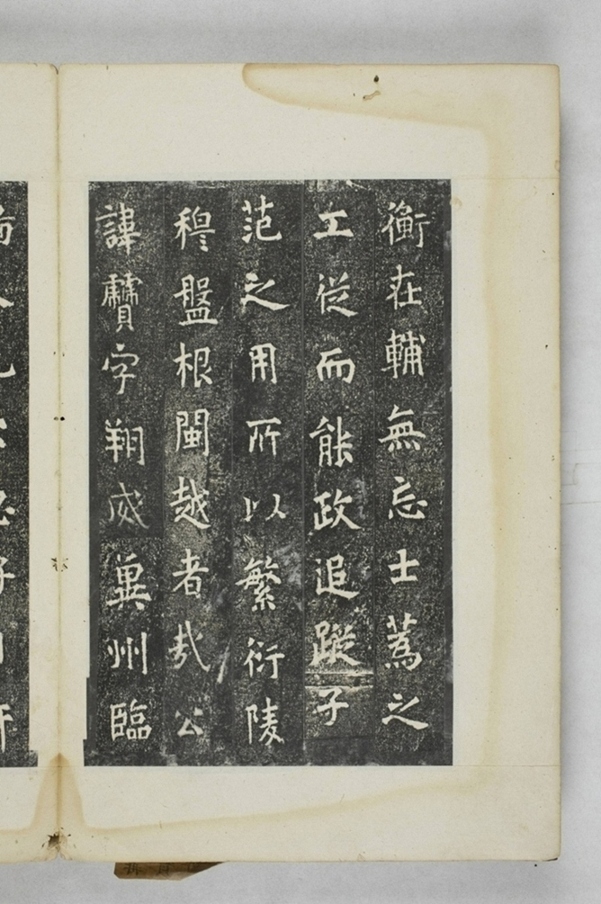 衡在輔無忘士蒍之
工從而能政追蹤子
范之用所以繁衍陵
穆盤根閩越者哉公
諱字翔威冀州臨